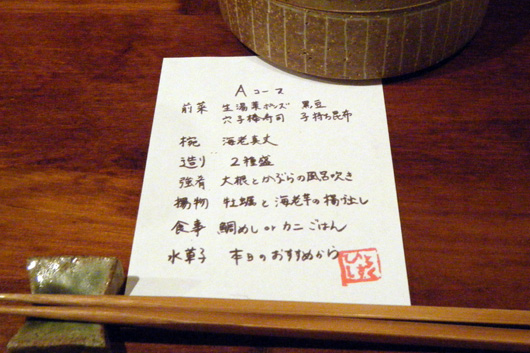 Aコース
前菜 生湯葉ポンズ 黒豆
穴子棒寿司 子持ち昆布
椀 海老真丈
造り 2種盛
強肴 大根とかぶらの風呂吹き
揚物 牡蠣と海老芋の揚げ出し
食事 鯛めし or カニごはん
水菓子 本日のおすすめから